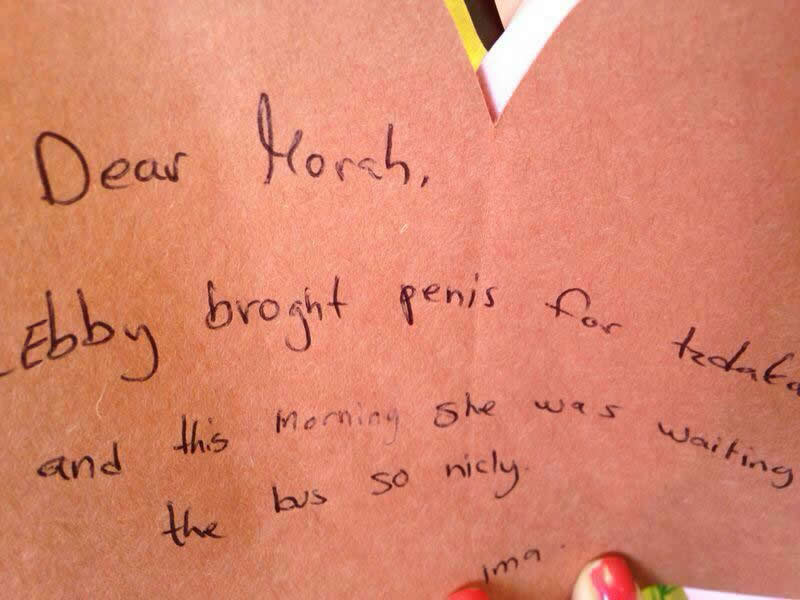 Dear Morah,
Ebby broght penis for tzdaka
and this morning she was waiting
the bus so nicly.
ima.